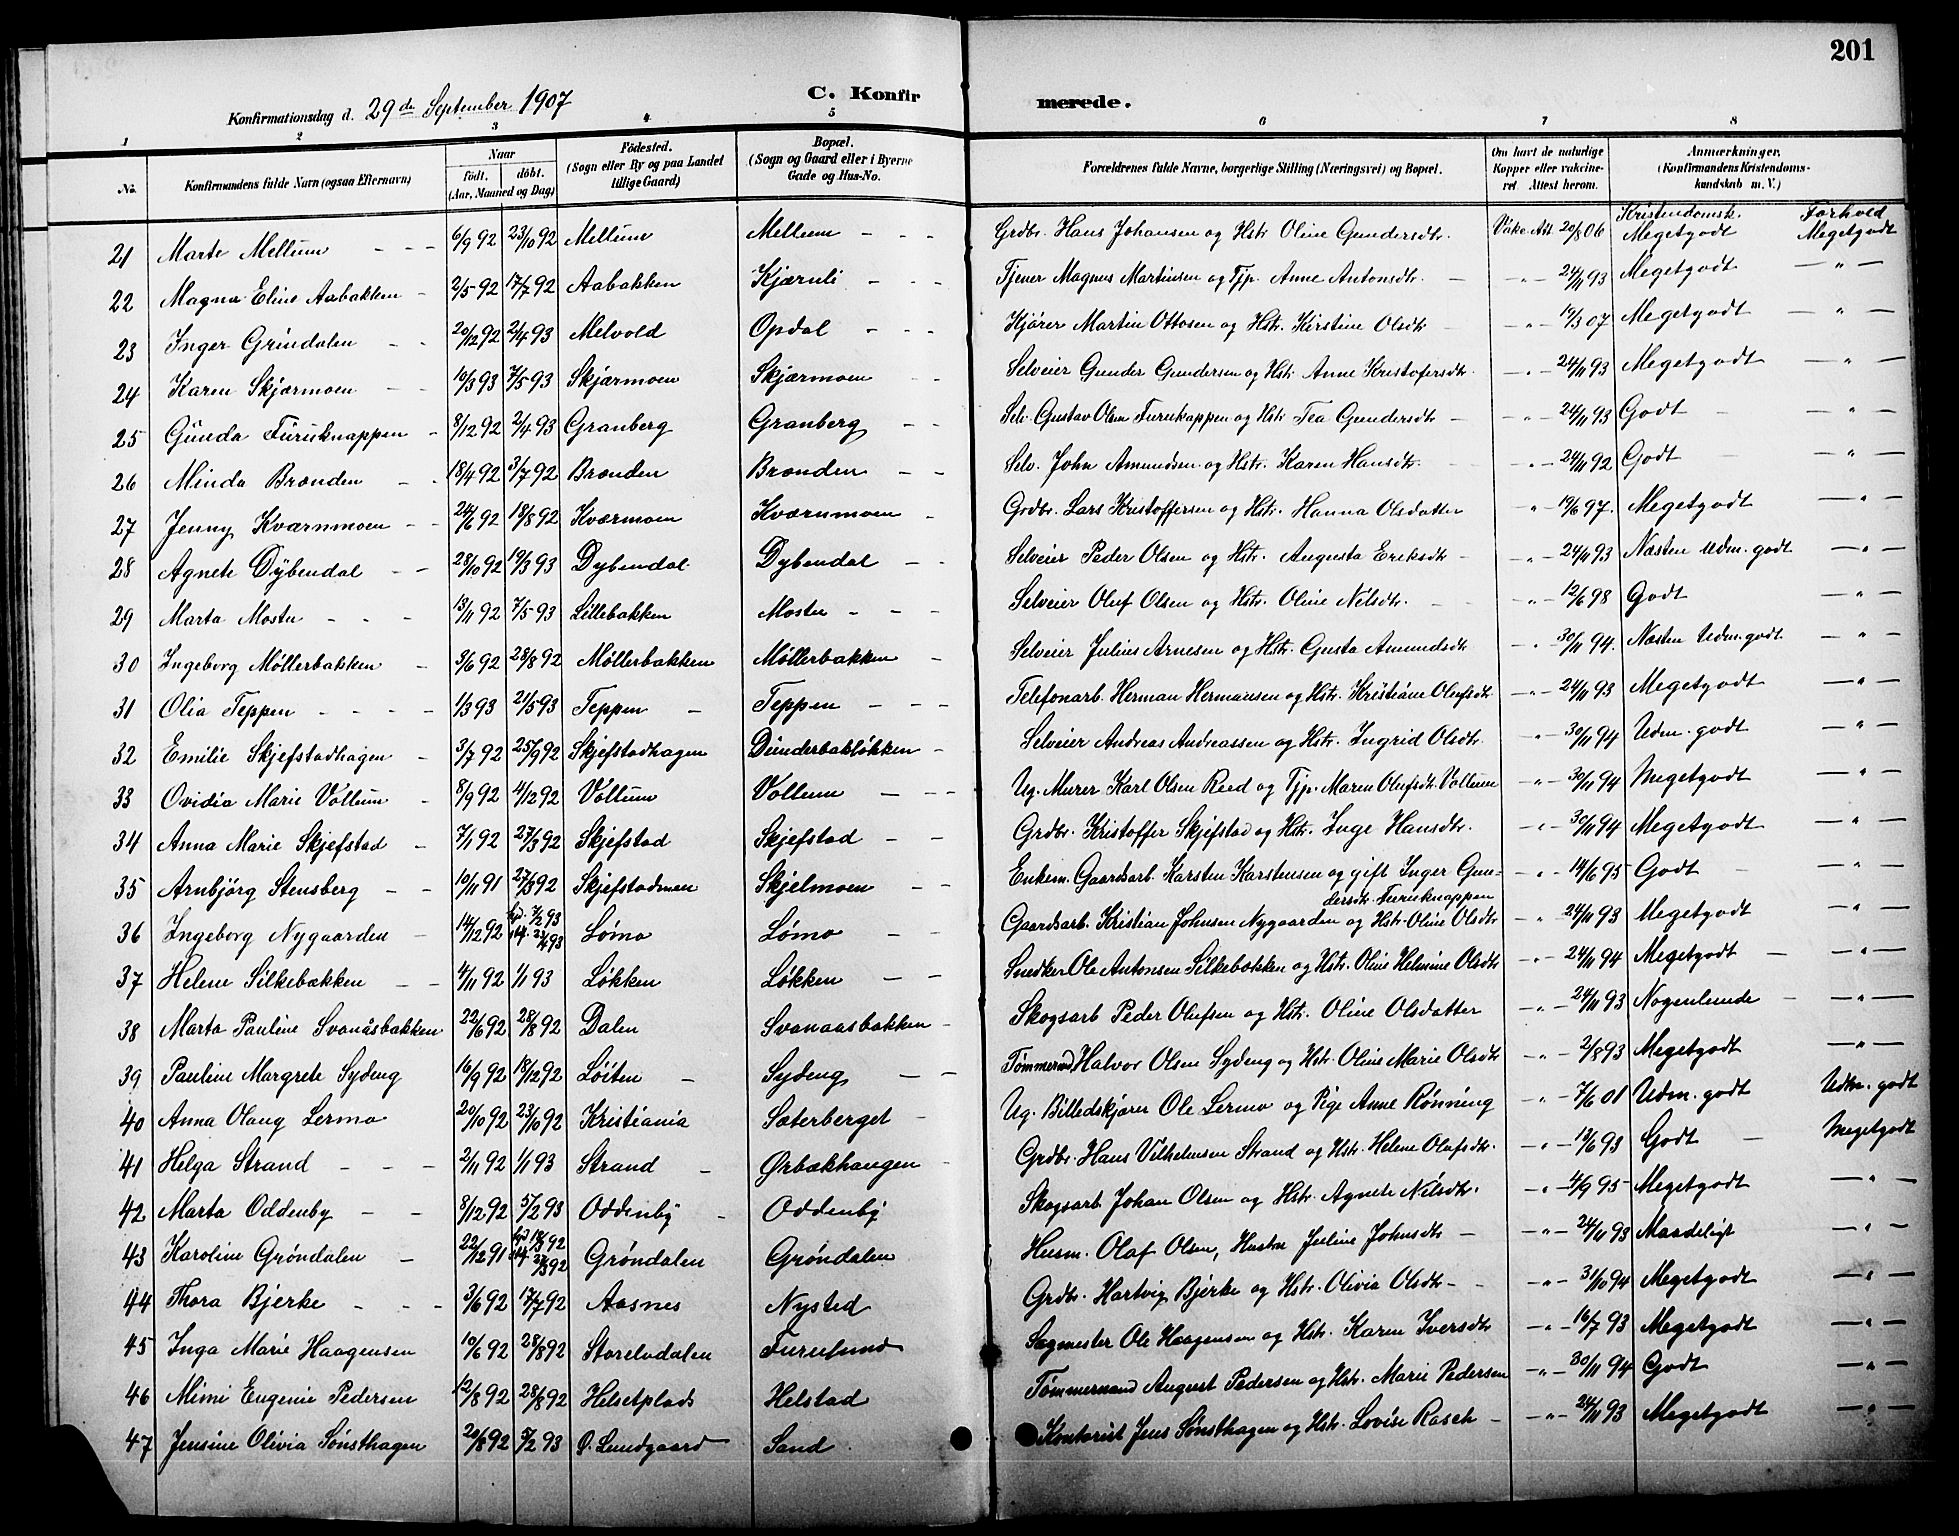 201
Konfirmationsdag d. 29de September 1907
C. Konfirmerede.
1 2 3 4 5 6 7 8
No. Konfirmandens fulde Navn (ogsaa Efternavn) Naar født. døbt. (Aar, Maaned og Dag) Fødested. (Sogn eller By og paa Landet tillige Gaard) Bopæl. (Sogn og Gaard eller i Byerne Gade og Hus-No. Forældrenes fulde Navne, borgerlige Stilling (Næringsvei) og Bopæl. Om havt de naturlige Kopper eller vakcineret. Attest herom. Anmærkninger. (Konfirmandens Kristendomskundskab m. V.)
Kristendomsk. Forhold
21 Marte Mellum - - - 6/9 92 23/10 92 Mellum Mellum - - - Grdbr. Hans Johansen og Hstr. Oline Gundersdtr. Vakc. Att 20/8 06 Megetgodt Megetgodt
22 Magna Eline Aabakken - 2/5 92 17/7 92 Aabakken Kjærnli - - - Tjener Magnus Martinsen og Tjp. Anne Antonsdtr. - -"- 24/11 93 Megetgodt -"-
23 Inger Grindalen - - 20/12 92 2/4 93 Melvold Opdal - - - Kjører Martin Ottosen og Hstr. Kirstine Olsdtr - -"- 19/3 07 Megetgodt -"-
24 Karen Skjærmoen - - 10/3 93 7/5 93 Skjærmoen Skjærmoen - - Selveier Gunder Gundersen og Hstr. Anne Kristofersdtr. -"- 24/11 93 Megetgodt -"-
25 Gunda Furuknappen - 8/12 92 2/4 93 Granberg Granberg - - Selv. Gustav Olsen Furukappen og Hstr. Tea Gundersdtr - -"- 24/11 93 Godt -"-
26 Minda Brænden - - 18/4 92 3/7 92 Brænden Brænden - - Selv. John Amundsen og Hstr. Karen Hansdtr. -"- 24/11 92 Godt -"-
27 Jenny Kværnmoen - - 24/6 92 18/8 92 Kværmoen Kværnmoen - Grdbr. Lars Kristoffersen og Hstr. Hanna Olsdatter -"- 19/6 97. Megetgodt -"-
28 Agnete Dybendal - - 28/10 92 19/3 93 Dybendal Dybendal - - Selveier Peder Olsen og Hstr. Augusta Eriksdtr - -"- 24/11 93 Næsten Udm. godt -"-
29 Marta Mostu - - - 13/11 92 7/5 93 Lillebakken Mostu - - - Selveier Oluf Olsen og Hstr. Oline Nelsdtr. - -"- 12/6 98 Godt -"-
30 Ingeborg Møllerbakken - 3/6 92 28/8 92 Møllerbakken Møllerbakken - Selveier Julius Arnesen og Hstr. Gusta Amundsdtr -"- 30/11 94. Næsten Udm. godt. -"-
31 Olia Teppen - - - - 1/3 93 21/5 93 Teppen - Teppen - - - Telefonarb. Herman Hermansen og Hstr. Kristiane Olufsdtr -"- 24/11 93 Megetgodt -"-
32 Emilie Skjefstadhagen - 3/7 92 25/9 92 Skjefstadhagen Dunderbakløkken - Selveier Andreas Andreassen og Hstr. Ingrid Olsdtr. -"- 30/11 94 Udm. godt -"-
33 Ovidia Marie Vollum - 8/9 92 4/12 92 Vollum Vollum - - - Ug. Murer Karl Olsen Reed og Tjp. Maren Olufsdtr. Vollum -"- 30/11 94 Megetgodt -"-
34 Anna Marie Skjefstad - 7/1 92 27/3 92 Skjefstad Skjefstad - - Grdbr. Kristoffer Skjefstad og Hstr. Inge Hansdtr. -"- 30/11 94 Megetgodt -"-
35 Arnbjörg Stensberg - - 10/11 91 27/3 92 Skjefstadmoen Skjelmoen - - Enkem. Gaardsarb. Karsten Karstensen og gift Inger Gun-
dersdtr. Furuknappen -"- 14/6 95 Godt - -"-
36 Ingeborg Nygaarden - 14/12 92 Lømo Lømo - - Gaardsarb. Kristian Johnsen Nygaarden og Hstr. Oline Olsdtr -"- 24/11 93 Megetgodt -"-
37 Helene Silkebækken - - 4/11 92 1/1 93 Løkken Løkken - - Snedker Ole Antonsen Silkebækken og Hstr. Oline Helmine Olsdtr -"- 24/11 94 Megetgodt - -"-
38 Marta Pauline Svanåsbakken 22/6 92 28/8 92 Dalen Svanaasbakken - Skogsarb Peder Olufsen og Hstr. Oline Olsdatter -"- 24/11 93 Nogenlunde - -"-
39 Pauline Margrete Sydeng 16/9 92 18/12 92 Løiten - Sydeng - - Tømmermd Halvor Olsen Sydeng og Hstr. Oline Marie Olsdtr -"- 2/8 93 Megetgodt -"-
40 Anna Olaug Lermo 20/10 92 23/10 92 Kristiania Sæterberget - Ug. Billedskjærer Ole Lermo og Pige Anne Rønning -"- 7/6 01 Udm. godt Udm. godt
41 Helga Strand - - - 2/11 92 1/1 93 Strand - Ørbækhaugen - Grdbr. Hans Vilhelmsen Strand og Hstr. Helene Olafsdtr. -"- 12/6 93 Godt - Megetgodt
42 Marta Oddenby - - 8/12 92 5/2 93 Oddenby - Oddenby Skogsarb Johan Olsen og Hstr. Agnete Nilsdtr. -"- 4/9 95 Megetgodt -"-
43 Karoline Grøndalen - 22/12 91 Grøndalen Grøndalen Husm. Olaf Olsen, Hustru Juline Johnsdtr - -"- 24/11 93 Maadeligt -"-
44 Thora Bjerke - - - 3/6 92 17/7 92 Aasnes Nysted Grdbr. Hartvig Bjerke og Hstr. Olivia Olsdtr - -"- 31/10 94 Megetgodt -"-
45 Inga Marie Haagensen 10/6 92 28/8 92 Storelvdalen Furulund Sagmester Ole Haagensen og Hstr. Karen Iversdtr -"- 16/7 93 Megetgodt -"-
46 Mimi Eugenie Pedersen 12/8 92 28/8 92 Helsetplads Helstad Tømmermand August Pedersen og Hstr. Marie Pedersen -"- 30/11 94 Godt -"-
47 Jensine Olivia Sønsthagen 20/8 92 5/2 93 Ø. Lundgaard Sand Kontorist Jens Sønsthagen og Hstr. Lovise Rasch - -"- 24/11 93 Megetgodt -"-